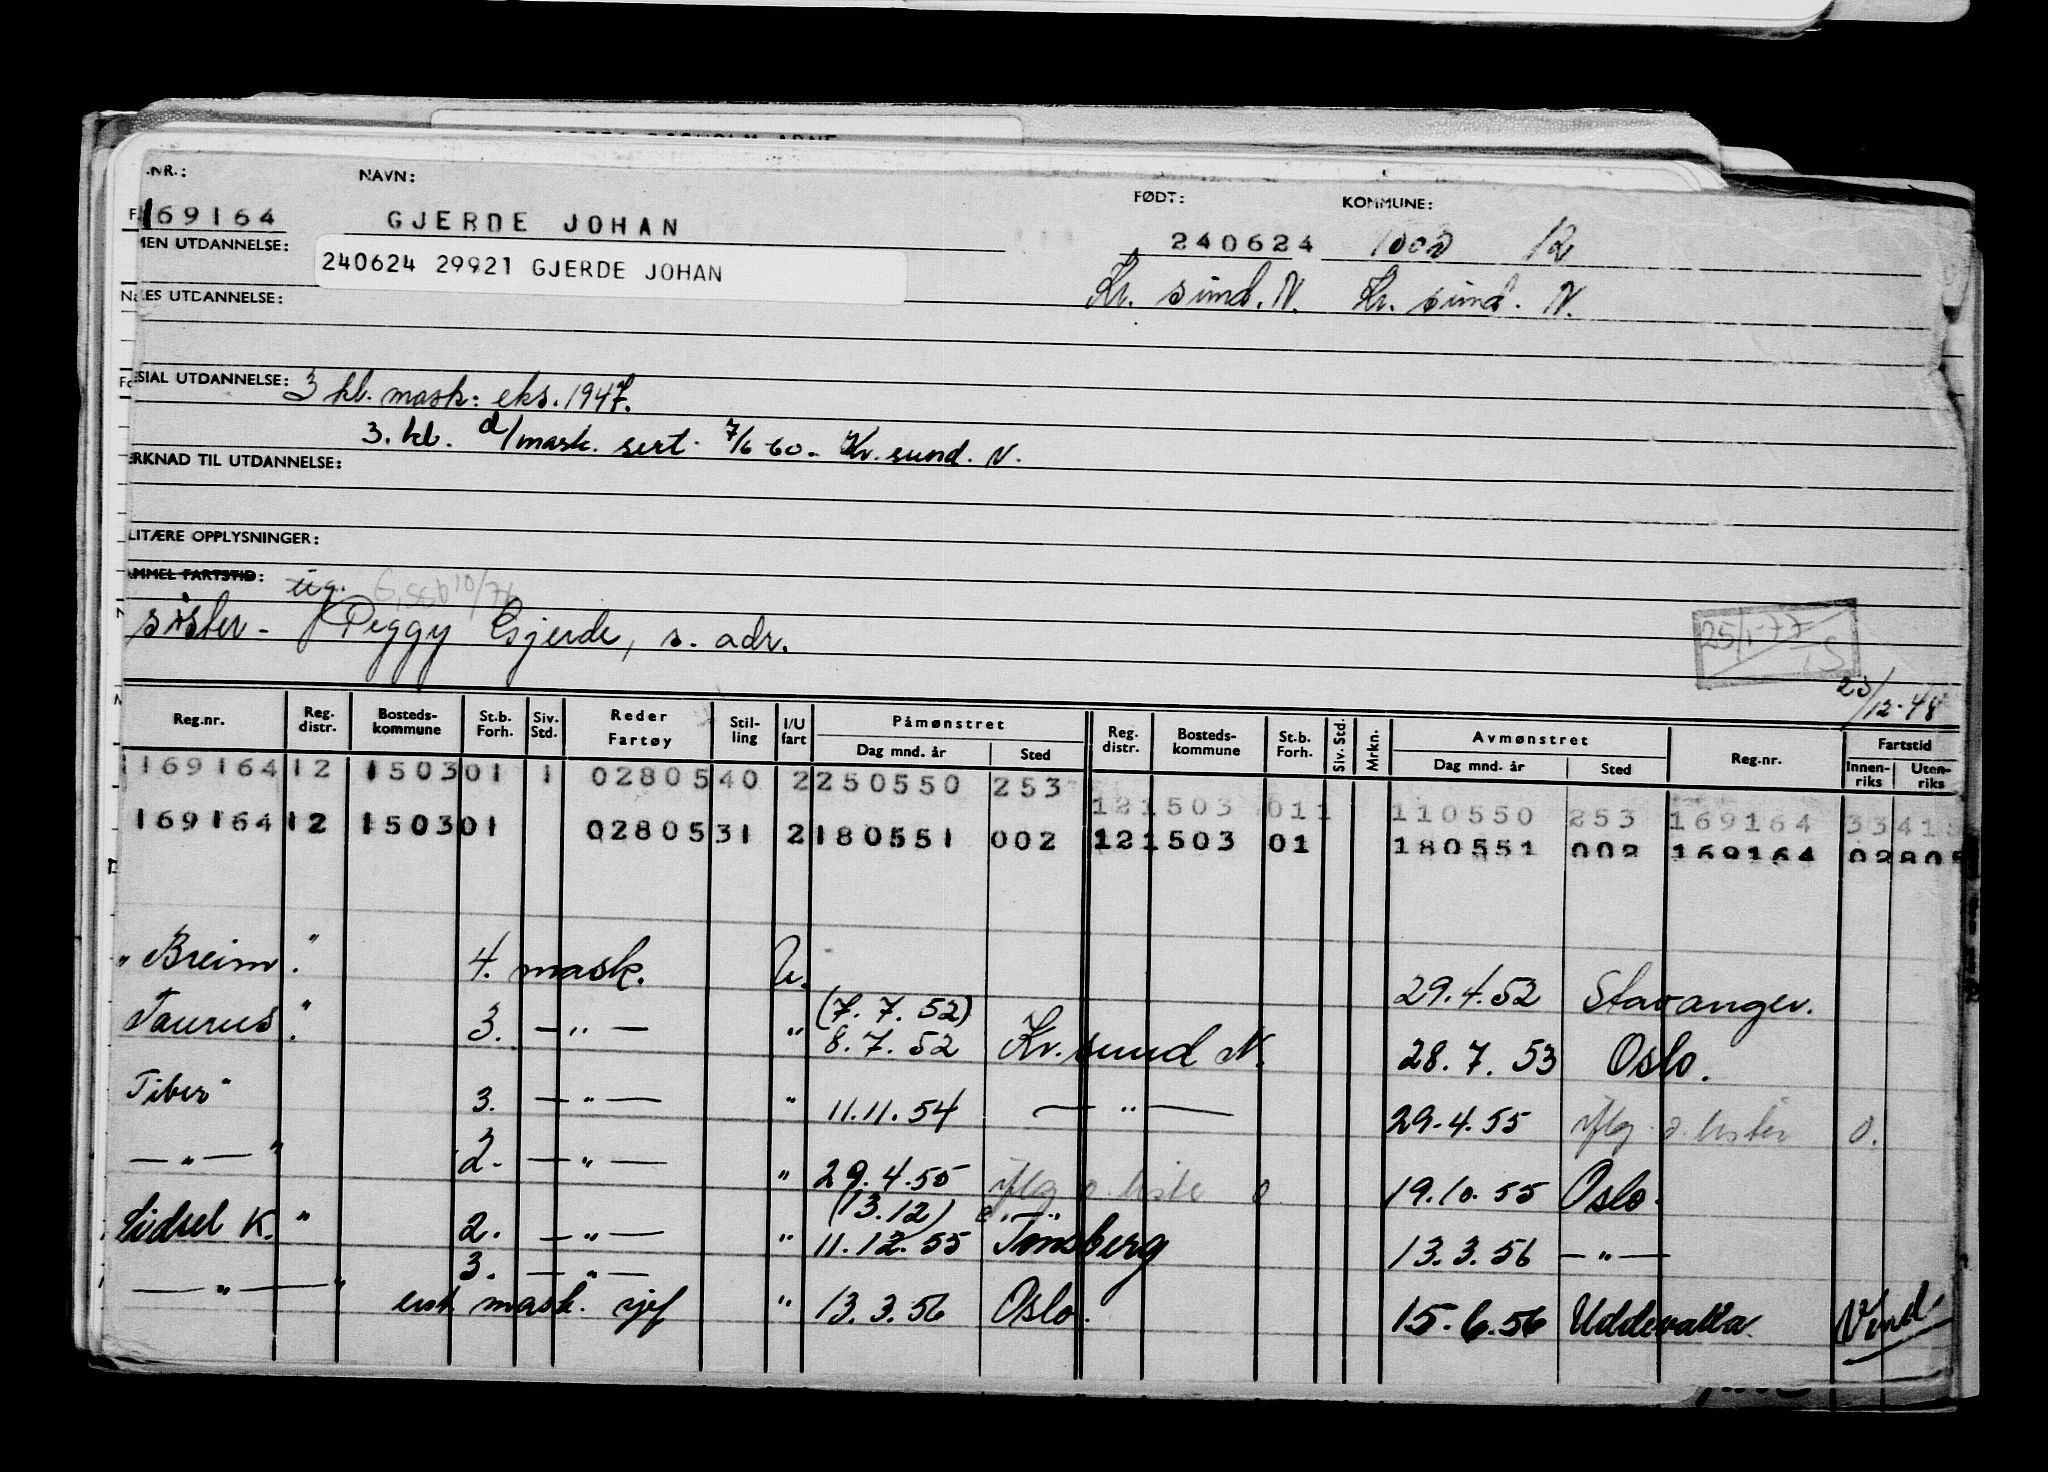 .NR.: NAVN: FØDT: KOMMUNE:
169164 GJERDE JOHAN 240624 1002 12
MEN UTDANNELSE: 240624 29921 GJERDE JOHAN Kr. sund. N. Kr. sund. N.
ES UTDANNELSE:
SIAL UTDANNELSE: 3 kl. mask: eks. 1947.
3. kl. d/mask. sert. 7/6 60 - Kr. sund. N.
ERKNAD TIL UTDANNELSE:
LITÆRE OPPLYSNINGER:
AMMEL FARTSTID: ug.
søster - Peggy Gjerde, s. adr.
25/1-77
TS
23/12-48
Reg.nr. Reg. distr. Bosteds-kommune St.b. Forh. Siv. Std. Reder Fartøy Stil-ling I/U fart Påmønstret Dag mnd. år Sted Reg. distr. Bosteds-kommune St.b. Forh. Siv. Std. Mrkn. Avmønstret Dag mnd. år Sted Reg.nr. Fartstid Innen-riks Uten-riks
169164 12 1503 01 1 02805 40 2 250550 253 12 1503 01 1 110550 253 169164 33 41
169164 12 1503 01 02805 31 2 180551 002 12 1503 01 180551 002 169164 02805
"Breim" 4. mask. U. 29.4.52 Stavanger.
Taurus" 3. — " — " (7.7.52) 8.7.52 Kr. sund N. 28.7.53 Oslo.
Tiber" 3. — " — " 11.11.54 — " — 29.4.55 iflg. o. liste o.
— " — " 2. — " — " 29.4.55 iflg o. liste o 19.10.55 Oslo.
Lidsel K. " 2. — " — " (13.12) 11.12.55 Tønsberg 13.3.56 — " —
3. — " —
— " — " ensk mask. sjef " 13.3.56 Oslo. 15.6.56 Uddevalla Vend